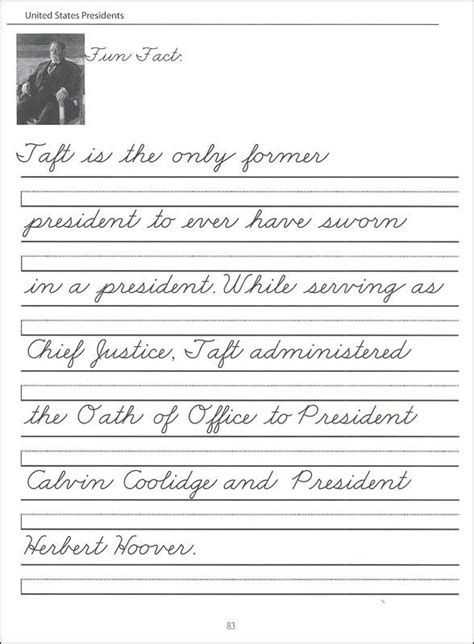 United States Presidents
Fun Fact:
Taft is the only former
president to ever have sworn
in a president. While serving as
Chief Justice, Taft administered
the Oath of Office to President
Calvin Coolidge and President
Herbert Hoover.
83